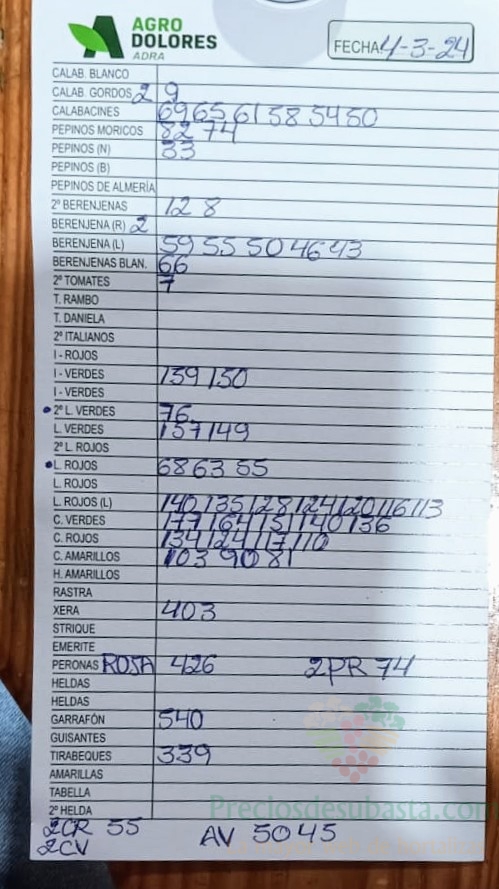 AGRO
DOLORES
ADRA
FECHA 4-3-24
CALAB. BLANCO
CALAB. GORDOS 2 9
CALABACINES 69 65 61 58 54 50
PEPINOS MORICOS 82 74
PEPINOS (N) 33
PEPINOS (B)
PEPINOS DE ALMERÍA
2º BERENJENAS 12 8
BERENJENA (R) 2
BERENJENA (L) 59 55 50 46 43
BERENJENAS BLAN. 66
2º TOMATES 7
T. RAMBO
T. DANIELA
2º ITALIANOS
I - ROJOS
I - VERDES 159 150
I - VERDES
2º L. VERDES 76
L. VERDES 157 149
2º L. ROJOS
L. ROJOS 68 63 55
L. ROJOS
L. ROJOS (L) 140 135 128 124 120 116 113
C. VERDES 177 164 151 140 136
C. ROJOS 134 124 117 110
C. AMARILLOS 103 90 81
H. AMARILLOS
RASTRA
XERA 403
STRIQUE
EMERITE
PERONAS ROJA 426 2PR 74
HELDAS
HELDAS
GARRAFÓN 540
GUISANTES
TIRABEQUES 339
AMARILLAS
TABELLA
2º HELDA
Preciosdesubasta.com
2CR 55
2CV AV 50 45